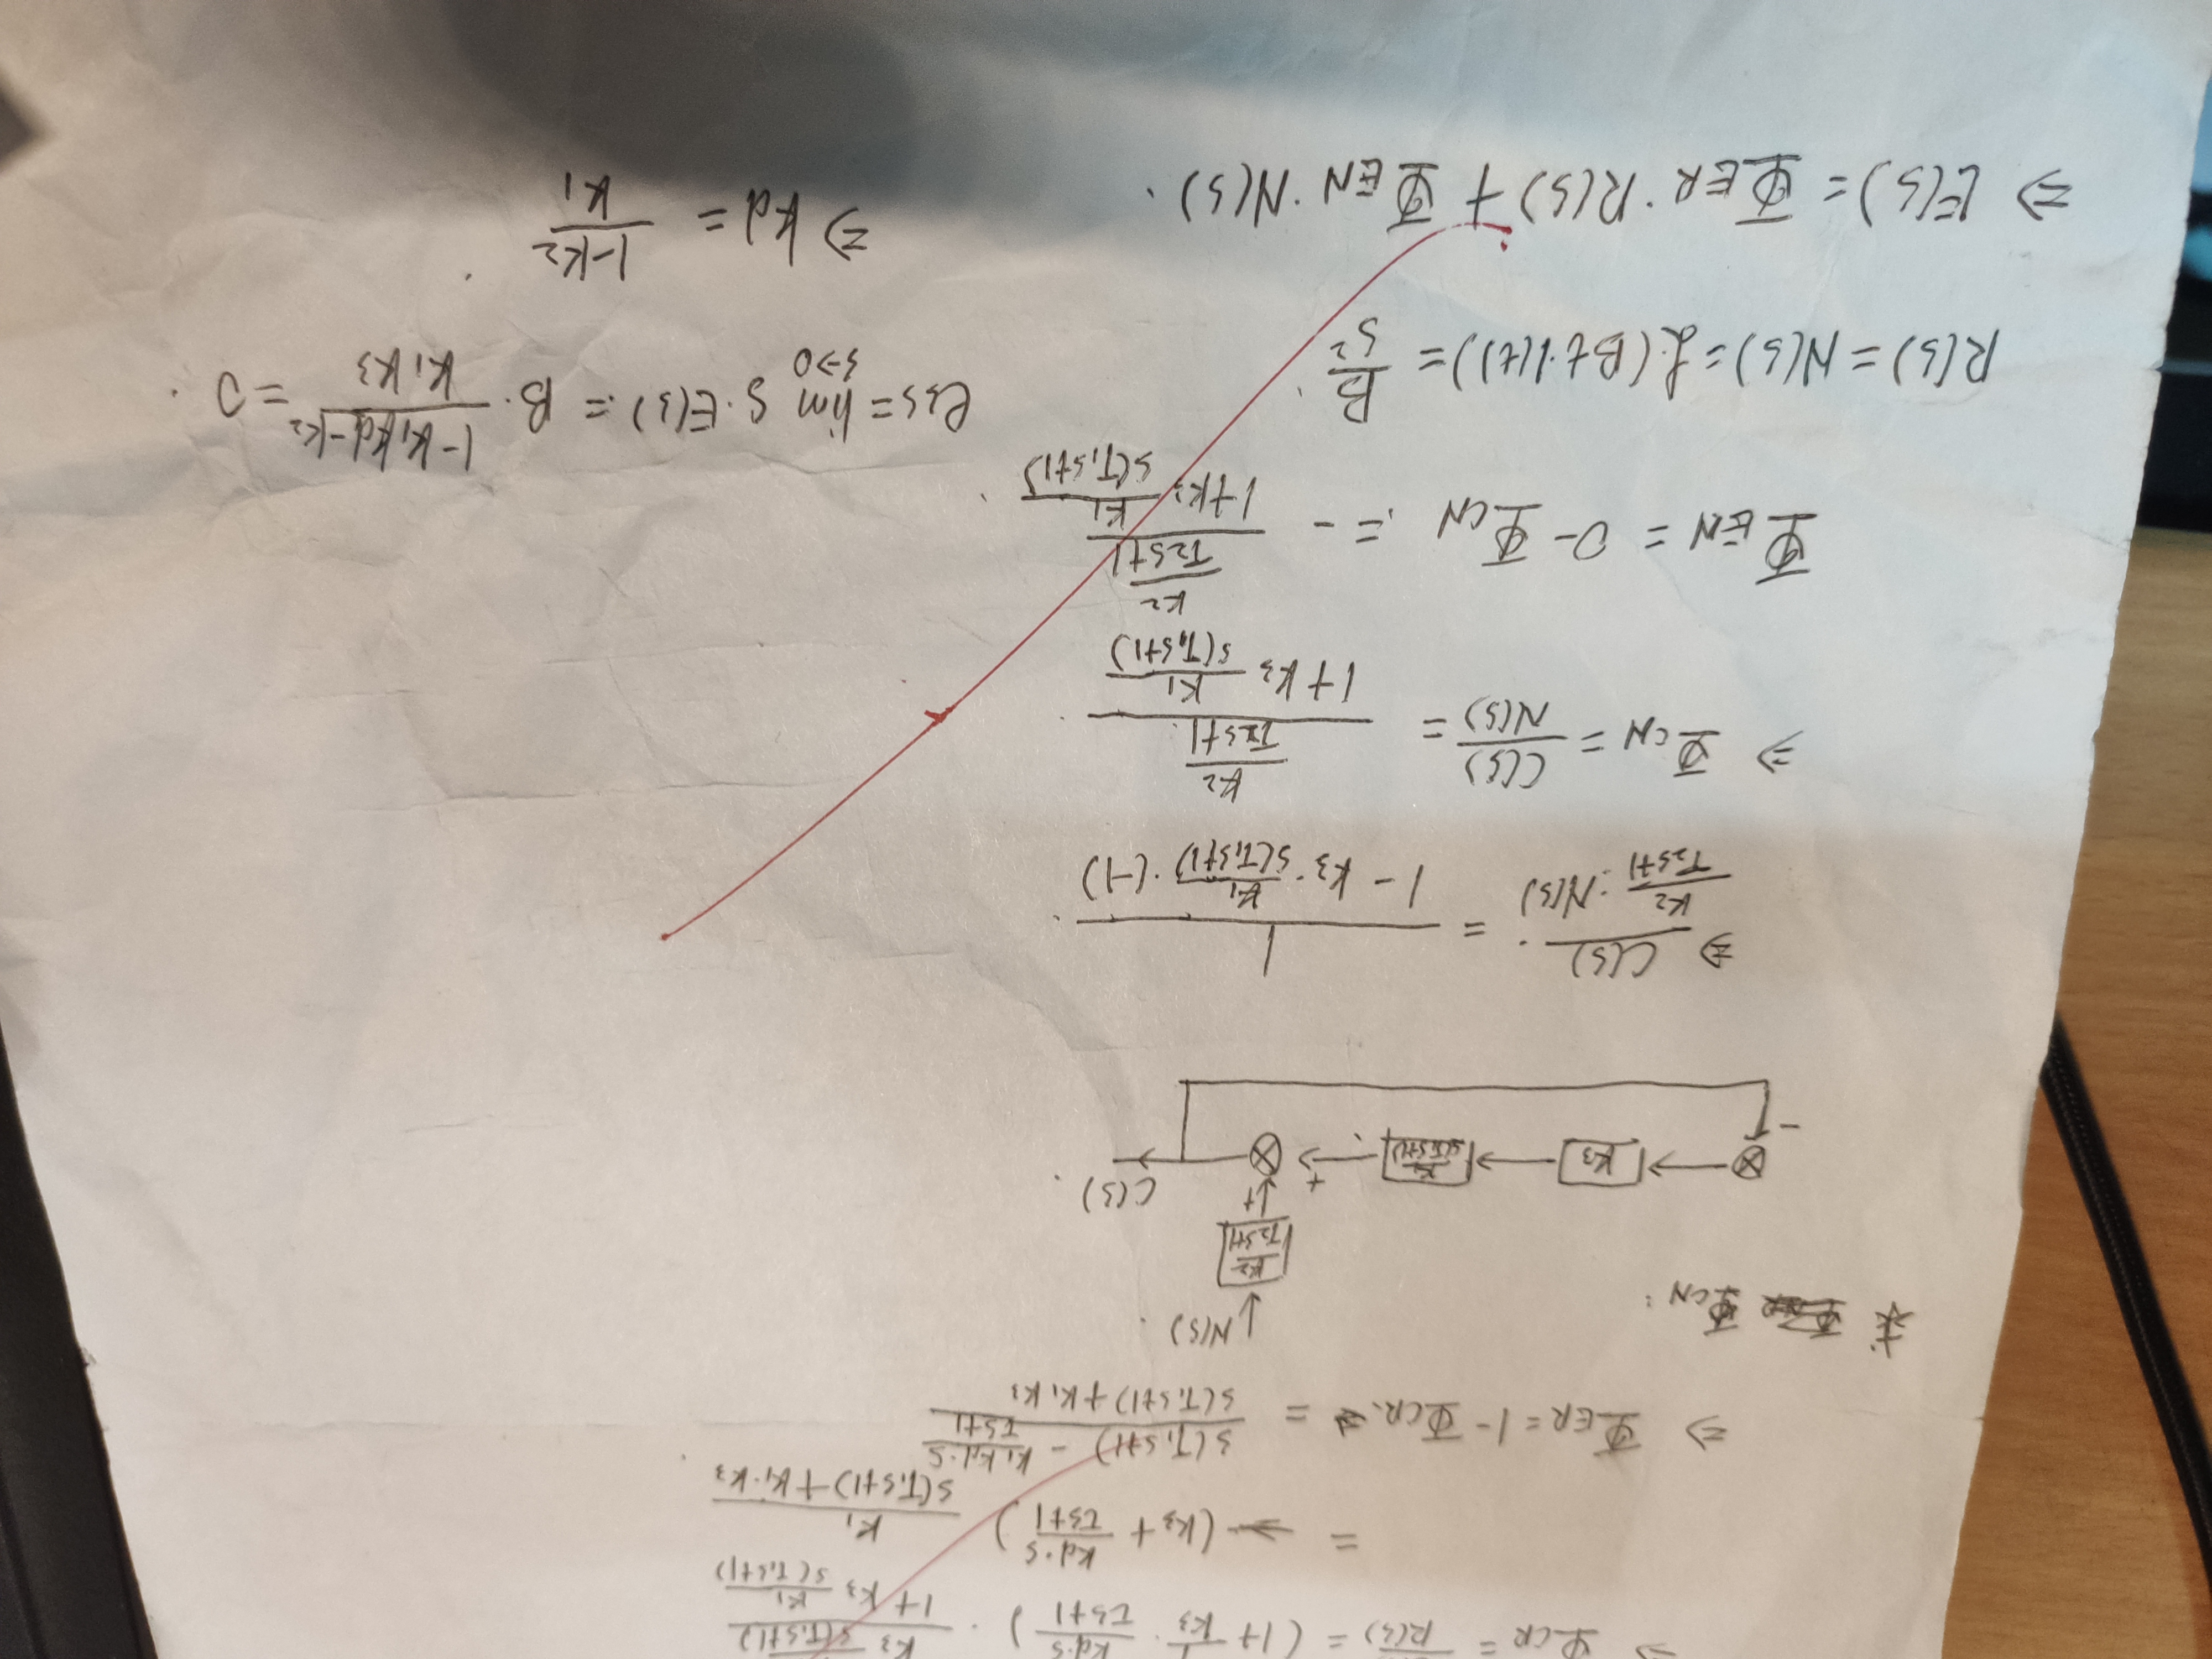 ⇒ Φ_CR = —/R(s) = (1 + 1/K3 · Kd·s/(τs+1)) · (K3 —/(s(T1s+1)))/(1 + K3 K1/(s(T1s+1)))
= (K3 + Kd·s/(τs+1)) K1/(s(T1s+1)+K1·K3).
⇒ Φ_ER = 1 - Φ_CR = (s(T1s+1) - K1Kd·s/(τs+1))/(s(T1s+1)+K1K3)
求 Φ_CN:
N(s).
K2/(T2s+1)
+
C(s).
K3
K1/(s(T1s+1))
+
-
⇒ C(s)/(K2/(T2s+1)·N(s)) = 1/(1 - K3·K1/(s(T1s+1))·(-1)).
⇒ Φ_CN = C(s)/N(s) = (K2/(T2s+1))/(1 + K3 K1/(s(T1s+1))).
Φ_EN = 0 - Φ_CN = - (K2/(T2s+1))/(1 + K3 K1/(s(T1s+1))).
R(s) = N(s) = ℒ(Bt·1(t)) = B/s².
⇒ E(s) = Φ_ER·R(s) + Φ_EN·N(s).
ess = lim s→0 s·E(s) = B·(1-K1Kd-K2)/(K1K3) = 0.
⇒ Kd = (1-K2)/K1